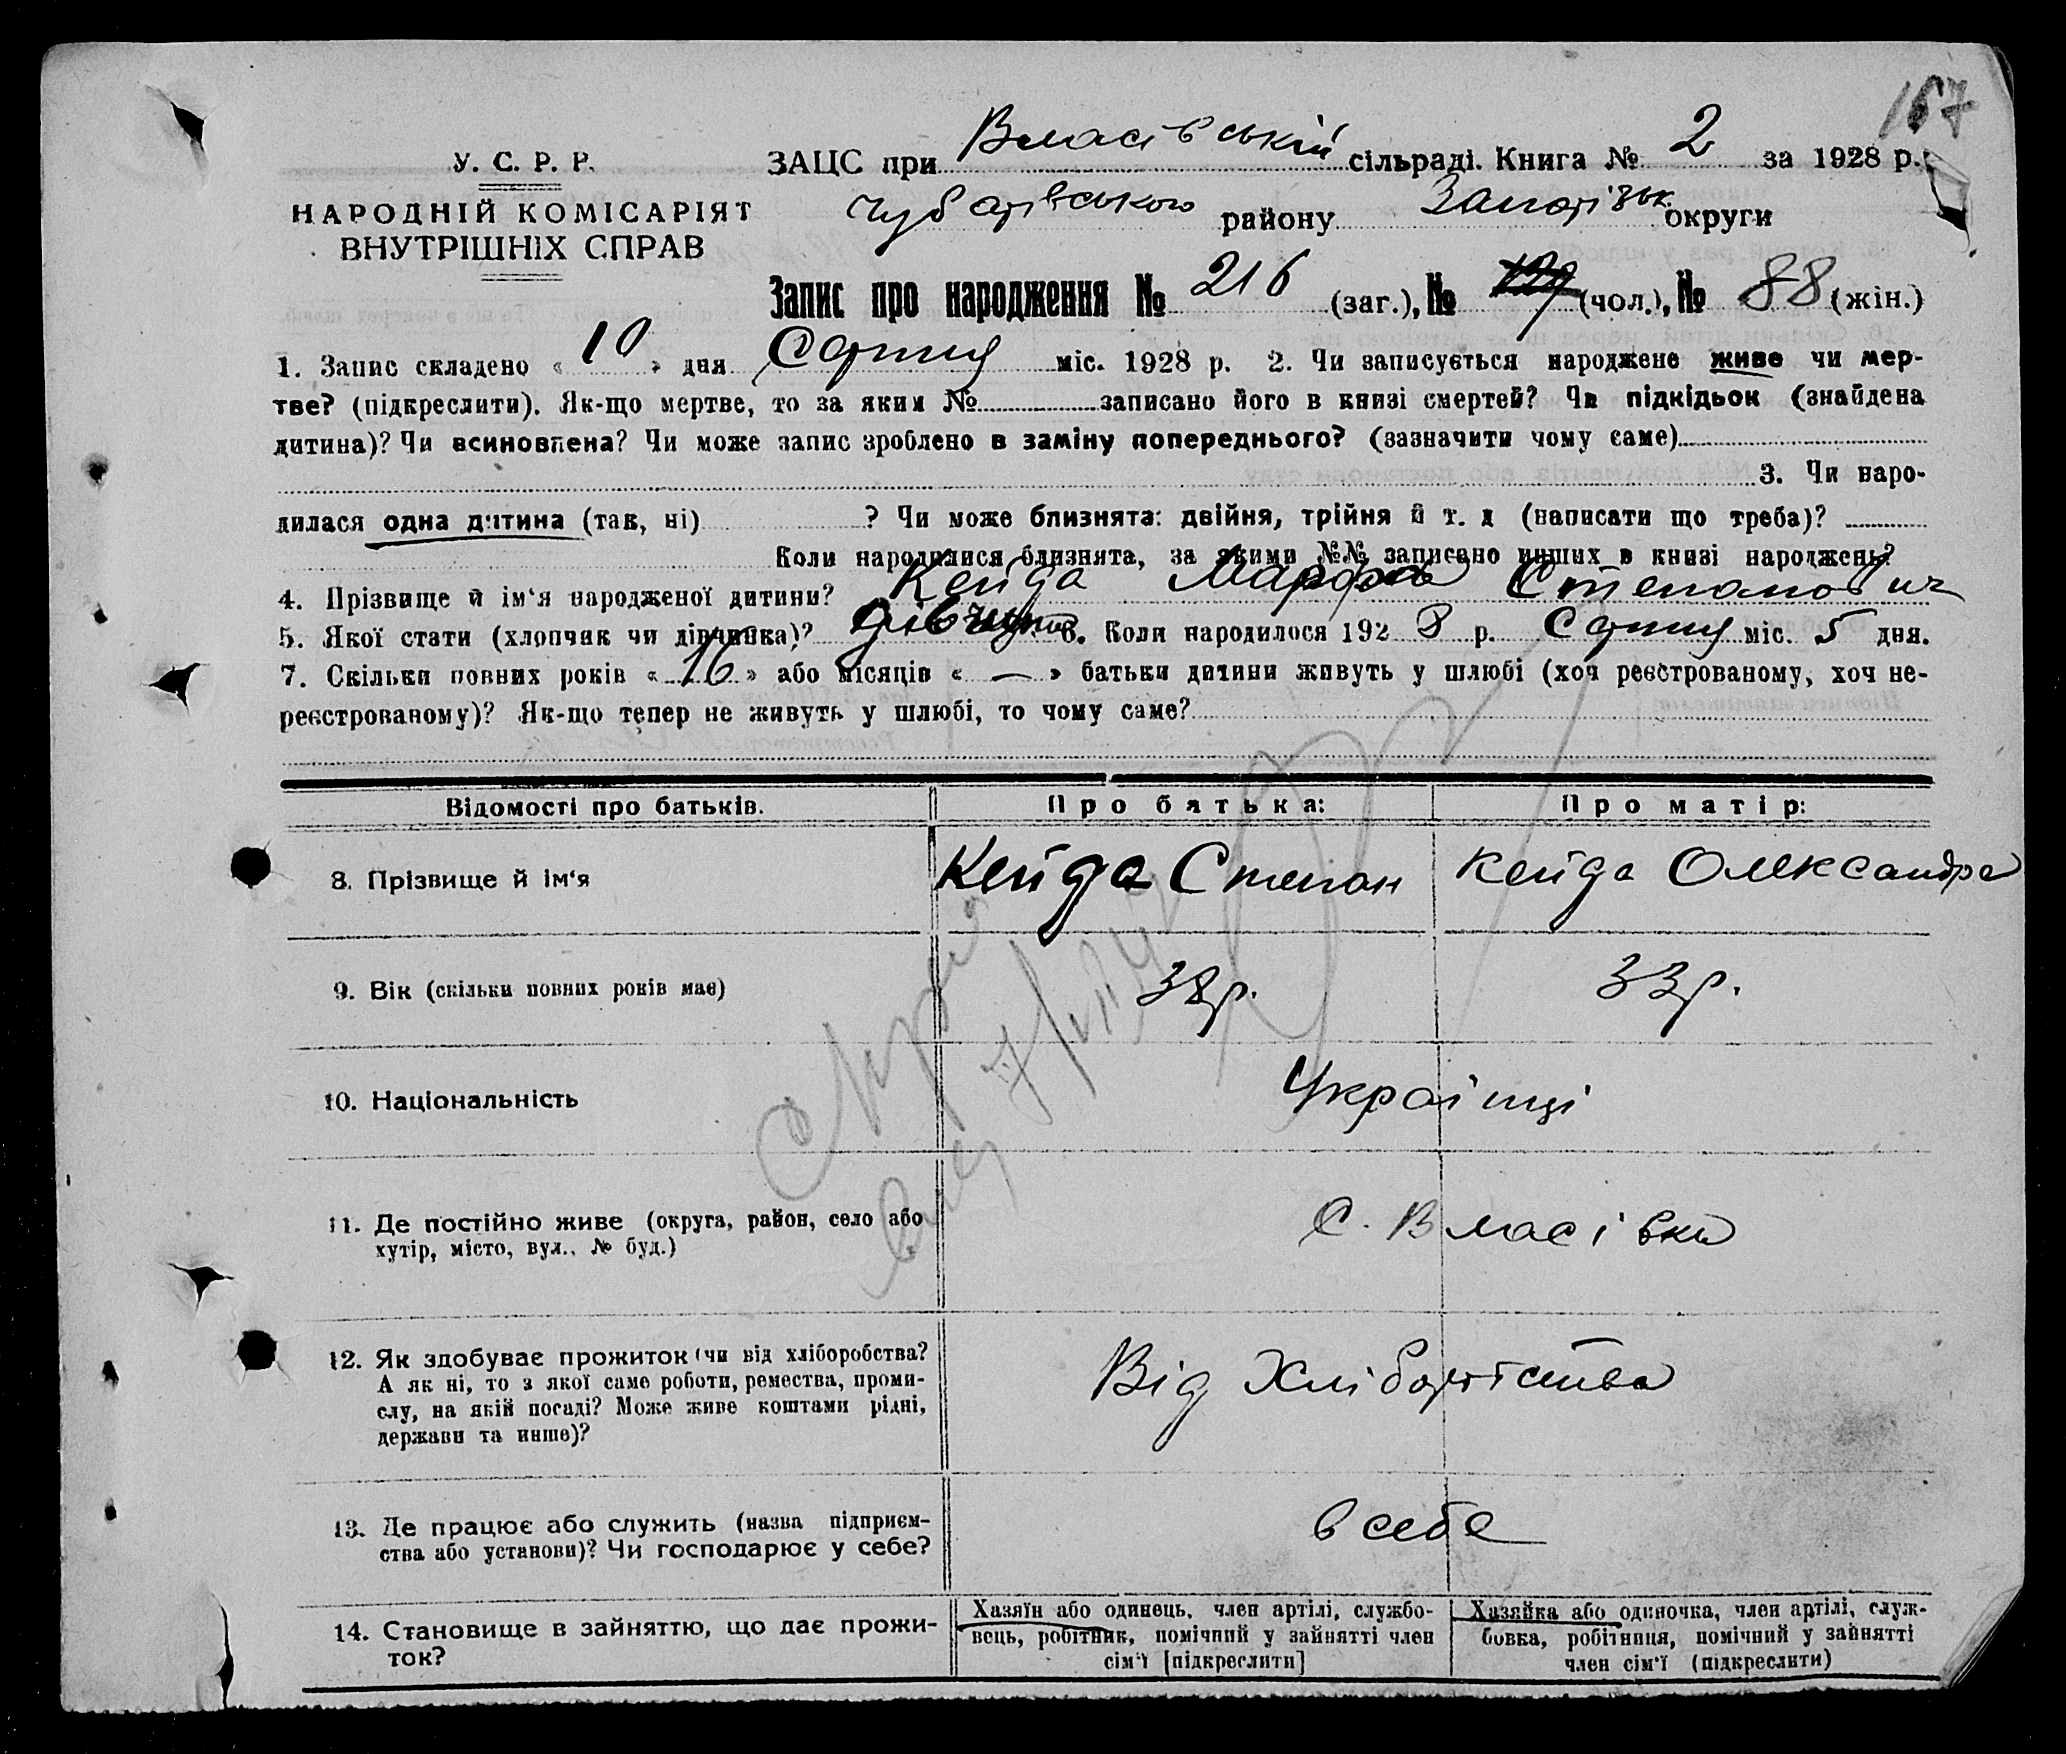 167
У. С. Р. Р.
НАРОДНІЙ КОМІСАРІЯТ
ВНУТРІШНІХ СПРАВ
ЗАЦС при Власівській сільраді. Книга № 2 за 1928 р.
Чубарівського району Запорізьк. округи
Запис про народження № 216 (заг.), № (чол.), № 88 (жін.)
1. Запис складено « 10 » дня Серпня міс. 1928 р. 2. Чи записується народжене живе чи мер-
тве? (підкреслити). Як-що мертве, то за яким № записано його в книзі смертей? Чи підкідьок (знайдена
дитина)? Чи всиновлена? Чи може запис зроблено в заміну попереднього? (зазначити чому саме)
3. Чи наро-
дилася одна дитина (так, ні) ? Чи може близнята: двійня, трійня й т. д (написати що треба)?
Коли народилися близнята, за якими №№ записано инших в книзі народжень?
4. Прізвище й ім‘я народженої дитини? Кейда Марфа Степанович
5. Якої стати (хлопчик чи дівчинка)? дівчина 6. Коли народилося 192 8 р. Серпня міс. 5 дня.
7. Скільки повних років « 16 » або місяців « — » батьки дитини живуть у шлюбі (хоч реєстрованому, хоч не-
реєстрованому)? Як-що тепер не живуть у шлюбі, то чому саме?
Відомості про батьків. Про батька: Про матір:
8. Прізвище й ім‘я Кейда Степан Кейда Олександра
9. Вік (скільки повних років має) 38р. 33р.
10. Національність Українці
11. Де постійно живе (округа, район, село або
хутір, місто, вул., № буд.) С. Власівка
12. Як здобуває прожиток (чи від хліборобства?
А як ні, то з якої саме роботи, ремества, проми-
слу, на якій посаді? Може живе коштами рідні,
держави та инше)?
Від Хліборобства
13. Де працює або служить (назва підприєм-
ства або установи)? Чи господарює у себе?
в себе
14. Становище в зайняттю, що дає прожи-
ток?
Хазяїн або одинець, член артілі, службо-
вець, робітник, помічний у зайнятті член
сім‘ї [підкреслити]
Хазяйка або одиночка, член артілі, служ-
бовка, робітниця, помічний у зайнятті
член сім‘ї (підкреслити)